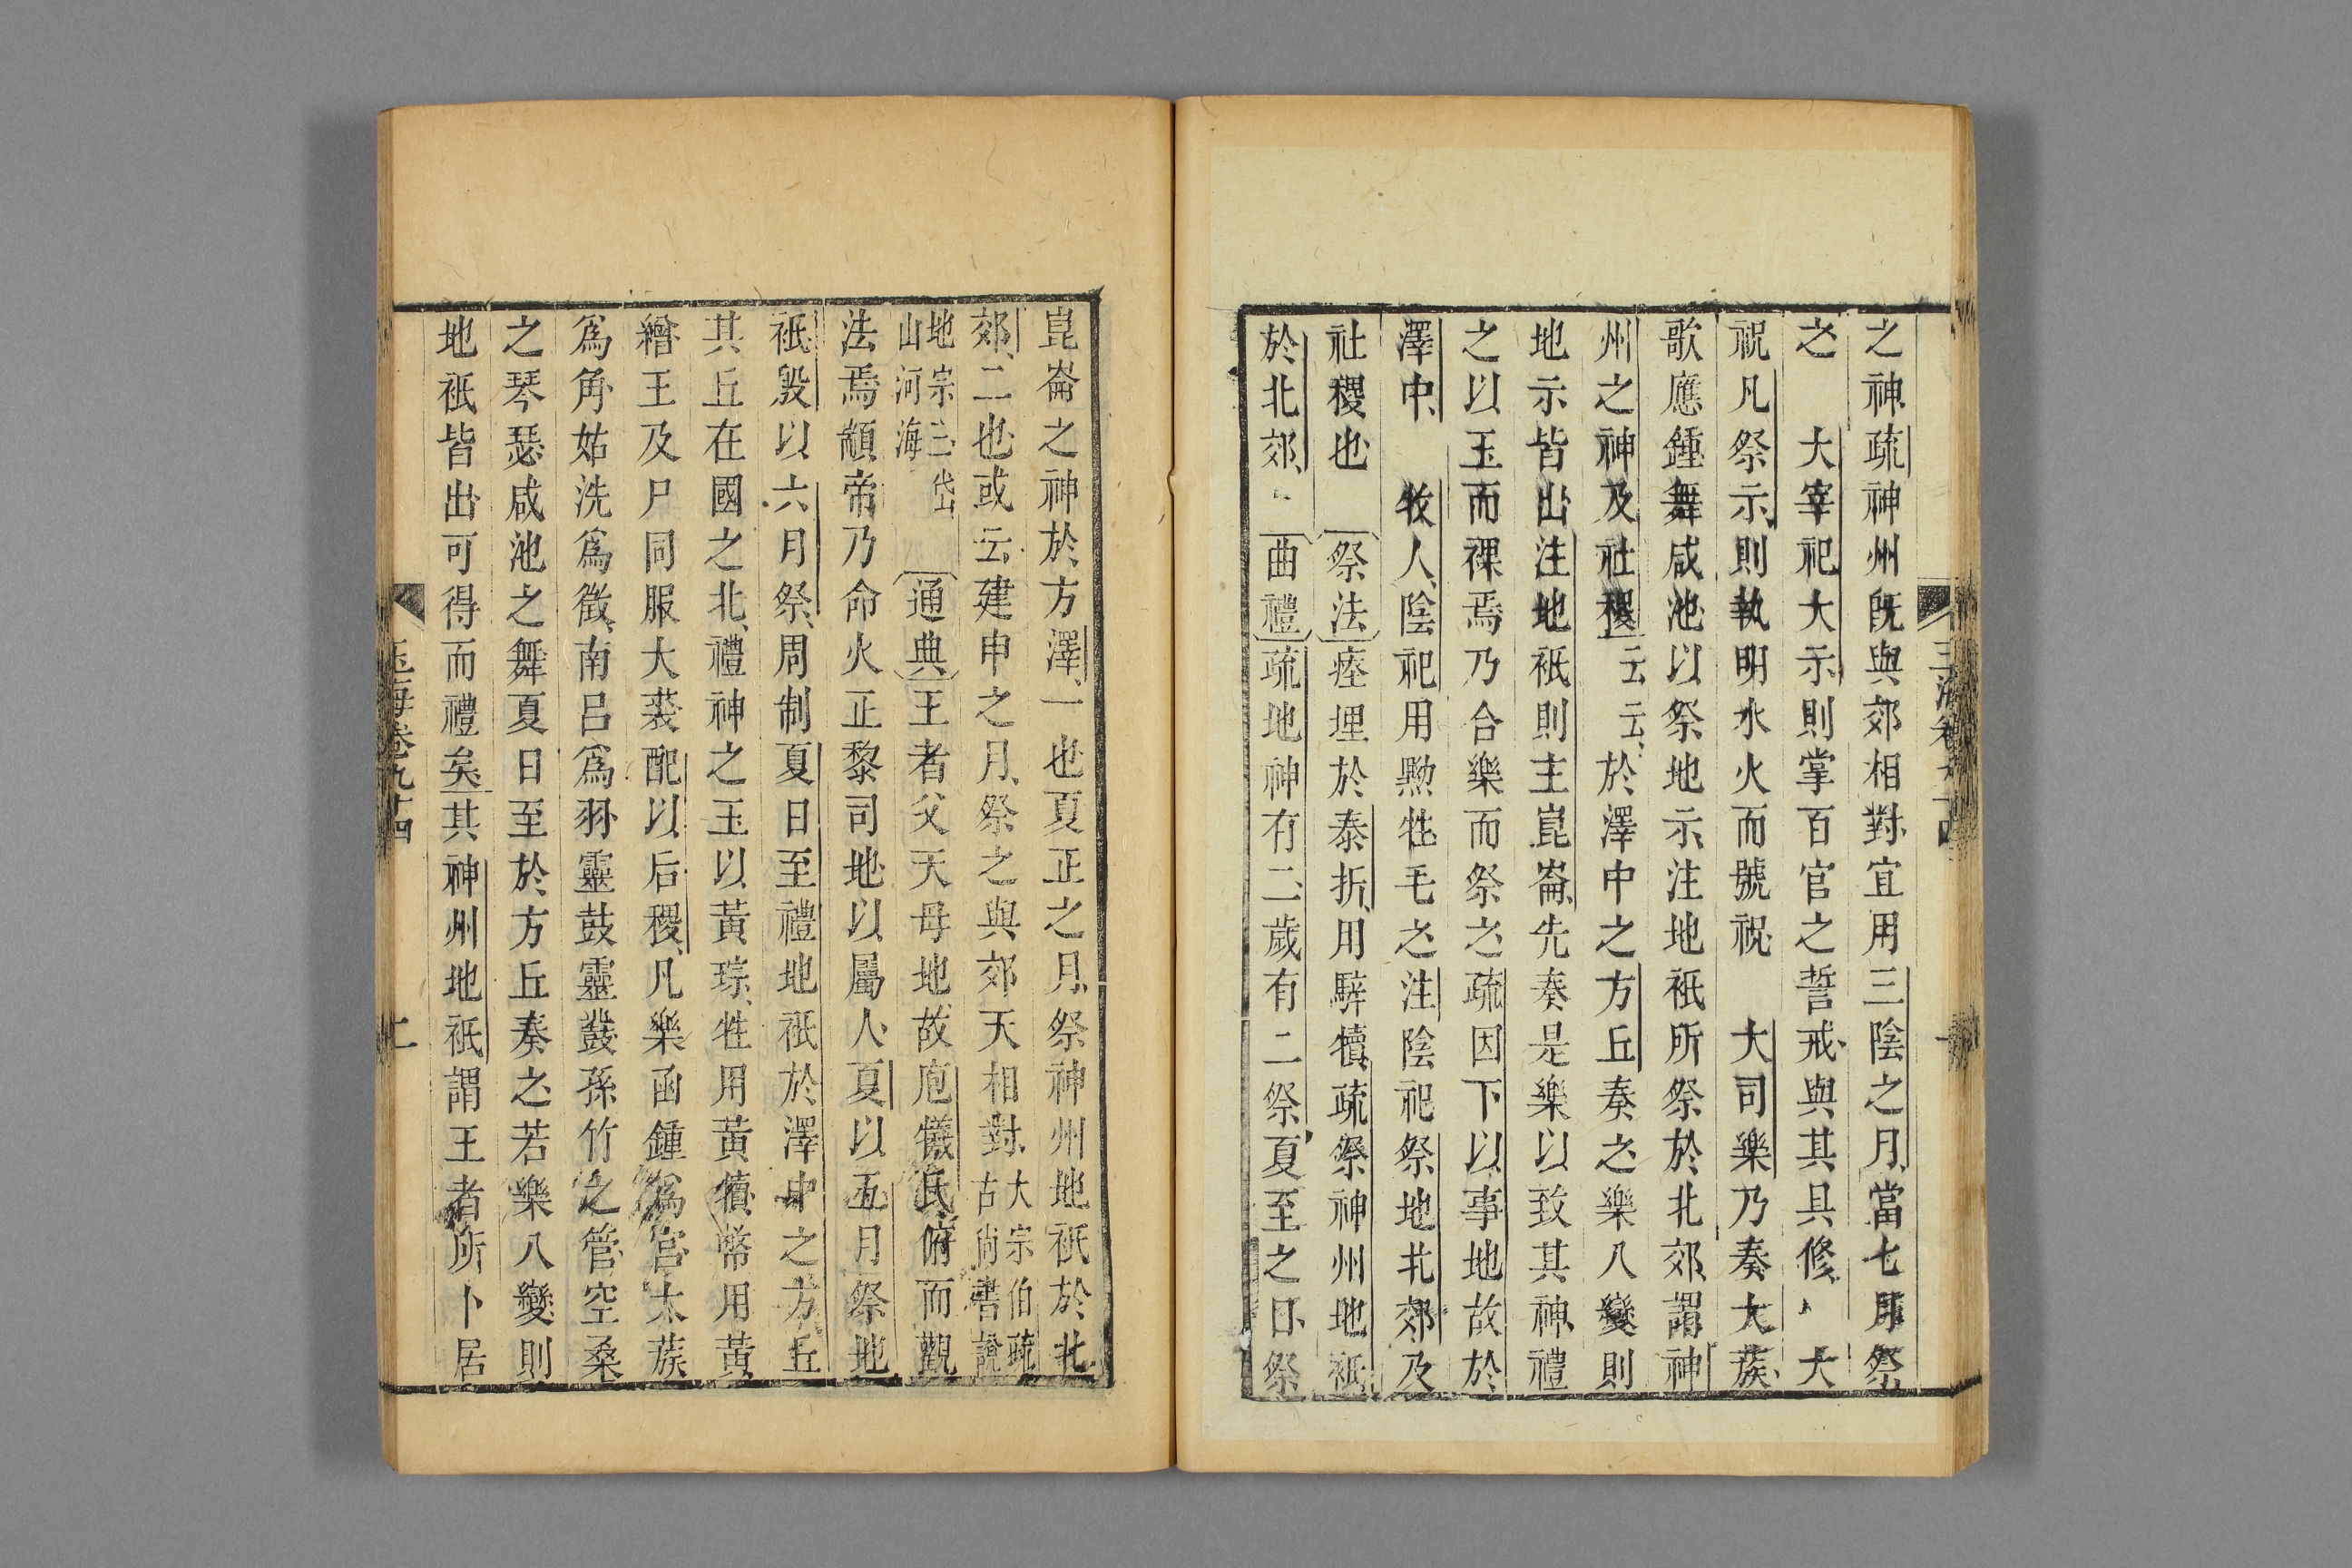 之神疏神州旣與郊相對宜用三陰之月當七月祭
之 大宰祀大示則掌百官之誓戒與其具修 大
祝凡祭示則執明水火而號祝 大司樂乃奏大蔟
歌應鍾舞咸池以祭地示注地祇所祭於北郊謂神
州之神及社稷云云於澤中之方丘奏之樂八變則
地示皆出注地祇則主崑崙先奏是樂以致其神禮
之以玉而祼焉乃合樂而祭之疏因下以事地故於
澤中 牧人陰祀用黝牲毛之注陰祀祭地北郊及
社稷也 祭法瘞埋於泰折用騂犢疏祭神州地祇
於北郊 曲禮疏地神有二歲有二祭夏至之日祭
崑崙之神於方澤一也夏正之月祭神州地祇於北
郊二也或云建申之月祭之與郊天相對大宗伯疏古尚書說
地宗三岱山河海 通典王者父天母地故庖犧氏俯而觀
法焉顓帝乃命火正黎司地以屬人夏以五月祭地
祇殷以六月祭周制夏日至禮地祇於澤中之方丘
其丘在國之北禮神之玉以黃琮牲用黃犢幣用黃
繒王及尸同服大裘配以后稷凡樂函鍾爲宮太蔟
爲角姑洗爲徵南呂爲羽靈鼓靈鼗孫竹之管空桑
之琴瑟咸池之舞夏日至於方丘奏之若樂八變則
地祇皆出可得而禮矣其神州地祇謂王者所卜居
玉海卷九十四 二